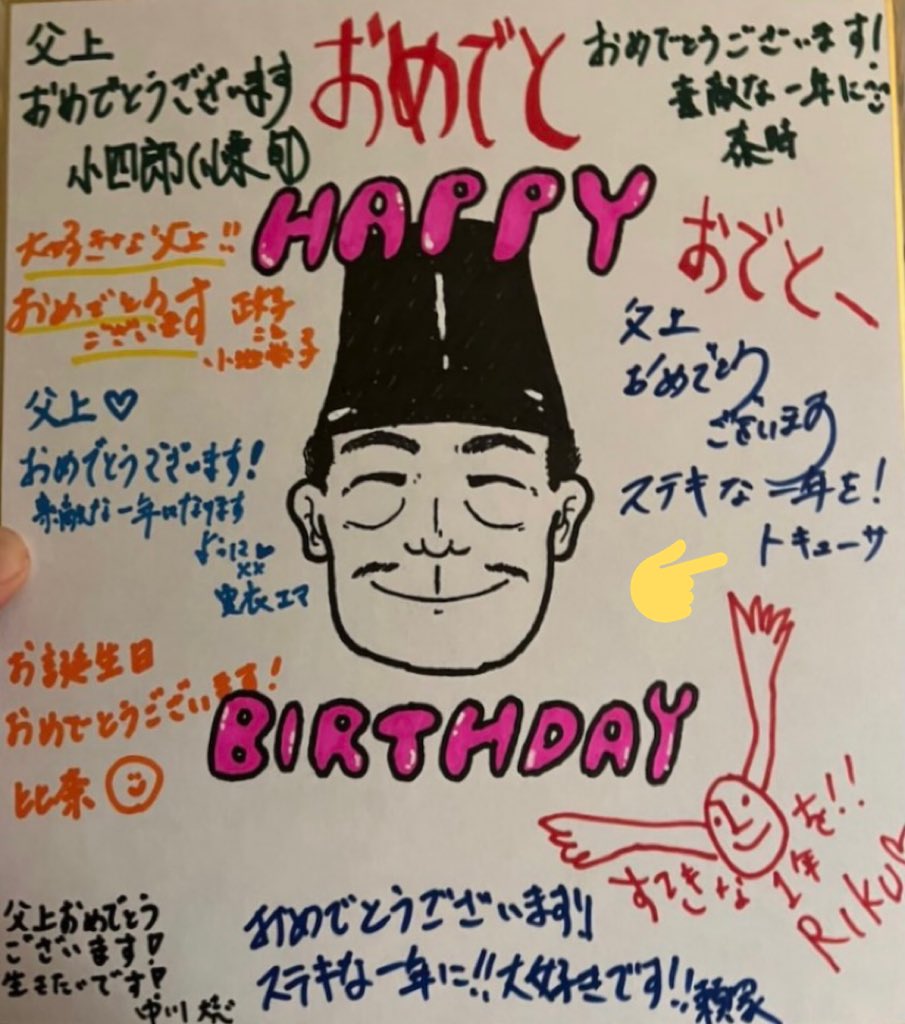 父上
おめでとうございます
小四郎(小栗旬)
おめでと
おめでとうございます!
素敵な一年に
泰時
HAPPY
大好きな父上!!
おめでとう
ございます
政子
こと
小池栄子
おでと、
父上
おめでとう
ございます
ステキな一年を!
トキューサ
父上♡
おめでとうございます!
素敵な一年になります
ように♡
××
実衣エマ
お誕生日
おめでとうございます!
比奈
BIRTHDAY
すてきな1年を!!
RIKU♡
父上おめでとう
ございます!
生きたいです!
中川
おめでとうございます!!
ステキな一年に!!大好きです!!頼家